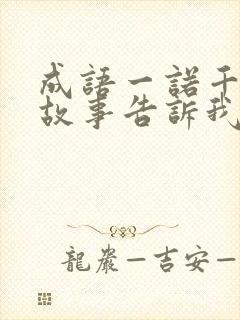 成語一諾千
故事告訴我
龍巖—吉安—